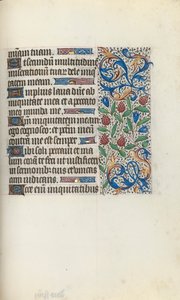 mam tuam.
Et secundum multitudinem
miserationum tuar. dele
iniquitatem meam.
Amplius laua me ab
iniquitate mea et a peccato
meo munda me.
Quoniam iniquitatem meam
ego cognosco: et peccatum meum
contra me est semper.
Tibi soli peccaui et ma
lum coram te feci ut iustificeris
in sermonibus tuis et vincas
cum iudicaris.
Ecce enim in iniquitatibus